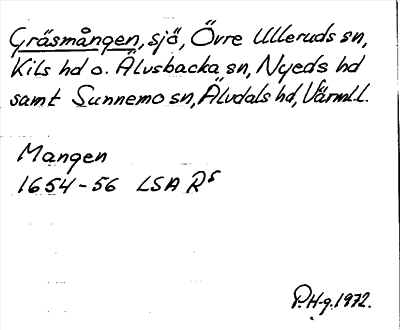 Gräsmången, sjö, Övre Ulleruds sn,
Kils hd o. Älvsbacka sn, Nyeds hd
samt Sunnemo sn, Älvdals hd, Värml.l.
Mangen
1654-56 LSA R⁵
P.H-g. 1972.